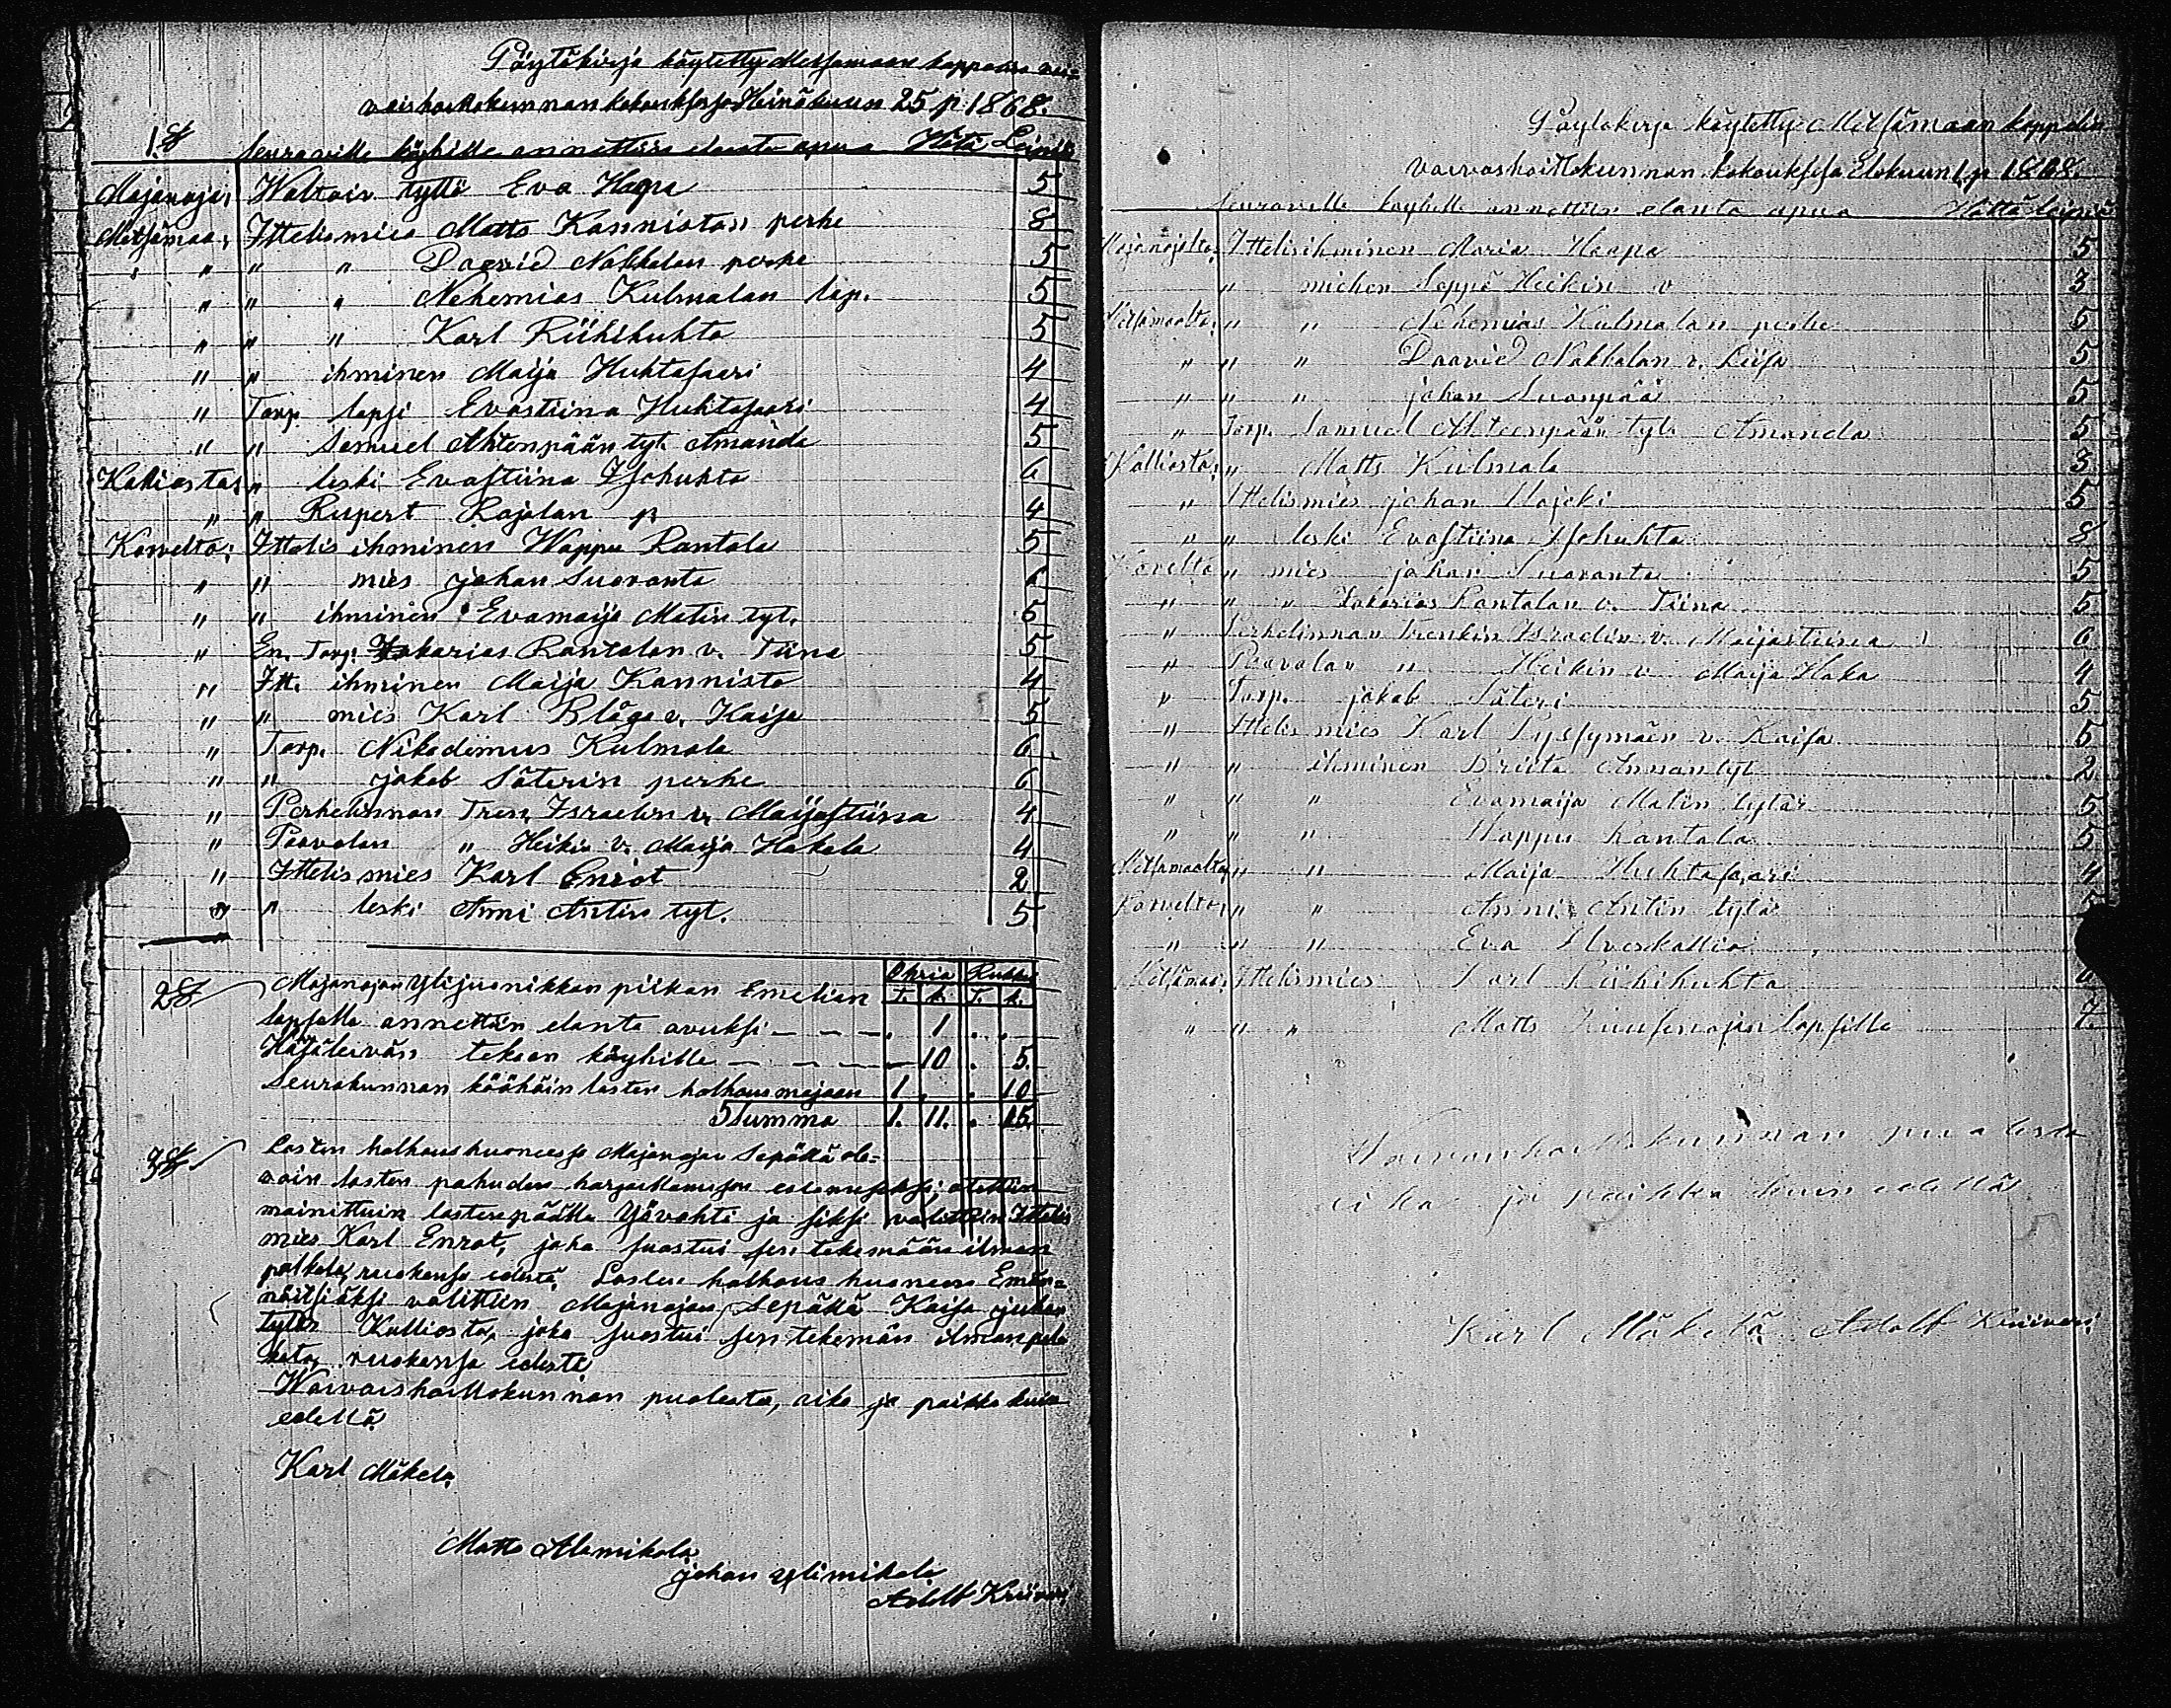 Pöytäkirja käytetty Metsämaan kappelin vai=
vaishoitokunnan kokouksessa Heinäkuun 25 p 1868.
1. § Seuraaville köyhille annettiin elanto apua Hätä Leipiä
Majanoja; Waltain tyttö Eva Haapa 5
Metsämaa; Ittelismies Matts Kanniston perhe 8
" " " Daavid Nokkalan perhe 5
" " " Nehemias Kulmalan lap. 5
" " " Karl Riihihuhta 5
" " ihminen Maija Huhtasaari 4
" Torp. lapsi Evastiina Huhtasaari 4
" " Samuel Ahtenpään tyt. Amanda 5
Kalliosta; " leski Evastiina Isohuhta 6
" " Rupert Rajalan p. 4
Korvelta; Ittelis ihminen Wappu Rantala 5
" " mies johan Suoranta 6
" " ihminen Evamaija Matin tyt. 5
" En. Torp. Zakarias Rantalan v. Tiina 5
" Itt. ihminen Maija Kannisto 4
" " mies Karl v. Kaisa 5
" Torp. Nikodimus Kulmala 6
" " jakob Säterin perhe 6
" Perhelinnan Tren. Israelin v. Maijastiina 4
" Paavolan " Heikin v. Maija Hakala 4
" Ittelis mies Karl Enrot 2
" " leski Anni Antin tyt. 5
Ohria Rukiita
2 § Majanojan Ylijuonikkan piikan Emelian T. k. T. k.
lapselle annettiin elanto avuksi — — — . 1 . .
Hätäleivän tekoon köyhille — — — — 10 . 5.
Seurakunnan kööhäin lasten holhous majaan 1. . . 10
Summa 1. 11. . 15.
3 § Lasten holhoushuoneessa Majanojan Sepällä ole=
vain lasten pahuden harjoittamisen estämiseksi; otettiin
mainittuin lasten päälle Yövahti ja siksi valittiin Ittelis
mies Karl Enrot, joka suostui sen tekemään ilman
palkata, ruokansa edestä. Lasten holhous huoneen Emän=
nöitsiäksi valittiin Majanojan Sepällä Kaisa juhan
tytär Kalliosta, joka suostui sen tekemän ilman pal=
kata, ruokansa edestä.
Waivaishoitokunnan puolesta, aika ja paikka kuin
edellä
Karl Mäkelä
Matts Alamikola
johan Ylimikola
Adolf Kriivari
Pöytäkirja käytetty Metsämaan kappelin
vaivashoittokunnan kokouksessa Elokuun 1 p 1868.
Seuraville köyhille annettiin elanto apua Hättä leipiä
Majanojalta; Ittelisihminen Maria Haapa 5
" miehen Seppä Heikin v 3
Metsämaalta; " " Nehemias Kulmalan perhe 5
" " " Daavid Nokkalan v. Liisa 5
" " " johan Suonpää 5
" Torp. Samuel Ahteenpään tyt. Amanda 5
Kalliosta; " Matts Kulmala 3
" Ittelismies johan 5
" " leski Evastiina Isohuhta 8
Korvelta " mies johan Suoranta 5
" " " Zakarias Rantalan v. Tiina 5
" Perhelinnan Trenkin Israelin v. Maijastiina 6
" Paavolan " Heikin v Maija Haka 4
" Torp. jakob Säteri 5
" Ittelis mies Karl v. Kaisa 5
" " ihminen Briita Annan tyt 2
" " " Evamaija Matin tytär 5
" " " Wappu Rantala 5
Metsämaalta; " " Maija Huhtasaari 4
Korvelta; " " Anni Antin tytär
" " " Eva
Metsämaa; Ittelismies Karl Riihihuhta
" " " Matts lapsille 7.
Waivaishoitokunnan puolesta
aika ja paikka kuin edellä
Karl Mäkelä Adolf Kriivari